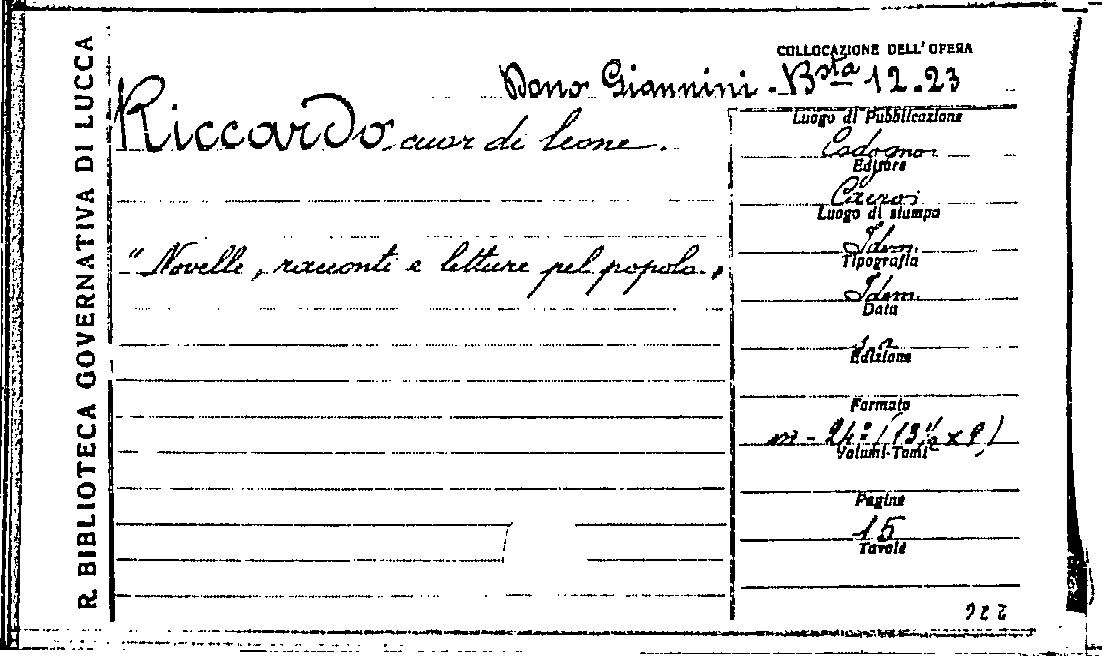 R. BIBLIOTECA GOVERNATIVA DI LUCCA
COLLOCAZIONE DELL'OPERA
Dono Giannini - Bsta 12.23
Riccardo cuor di leone.
"Novelle, racconti e letture pel popolo."
Luogo di Pubblicazione
Codogno
Editore
Cairo
Luogo di stampa
Idem.
Tipografia
Idem.
Data
Edizione
Formato
m - 24º (13 ½ x 9)
Volumi-Tomi
Pagine
15
Tavole